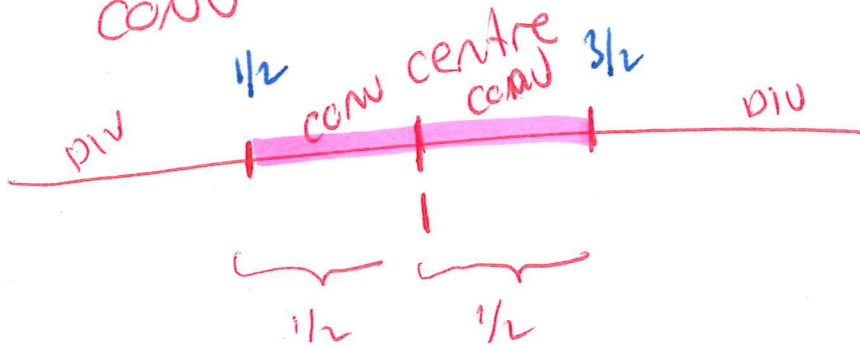 CONV
1/2 centre 3/2
DIV conv conv DIV
1
1/2 1/2